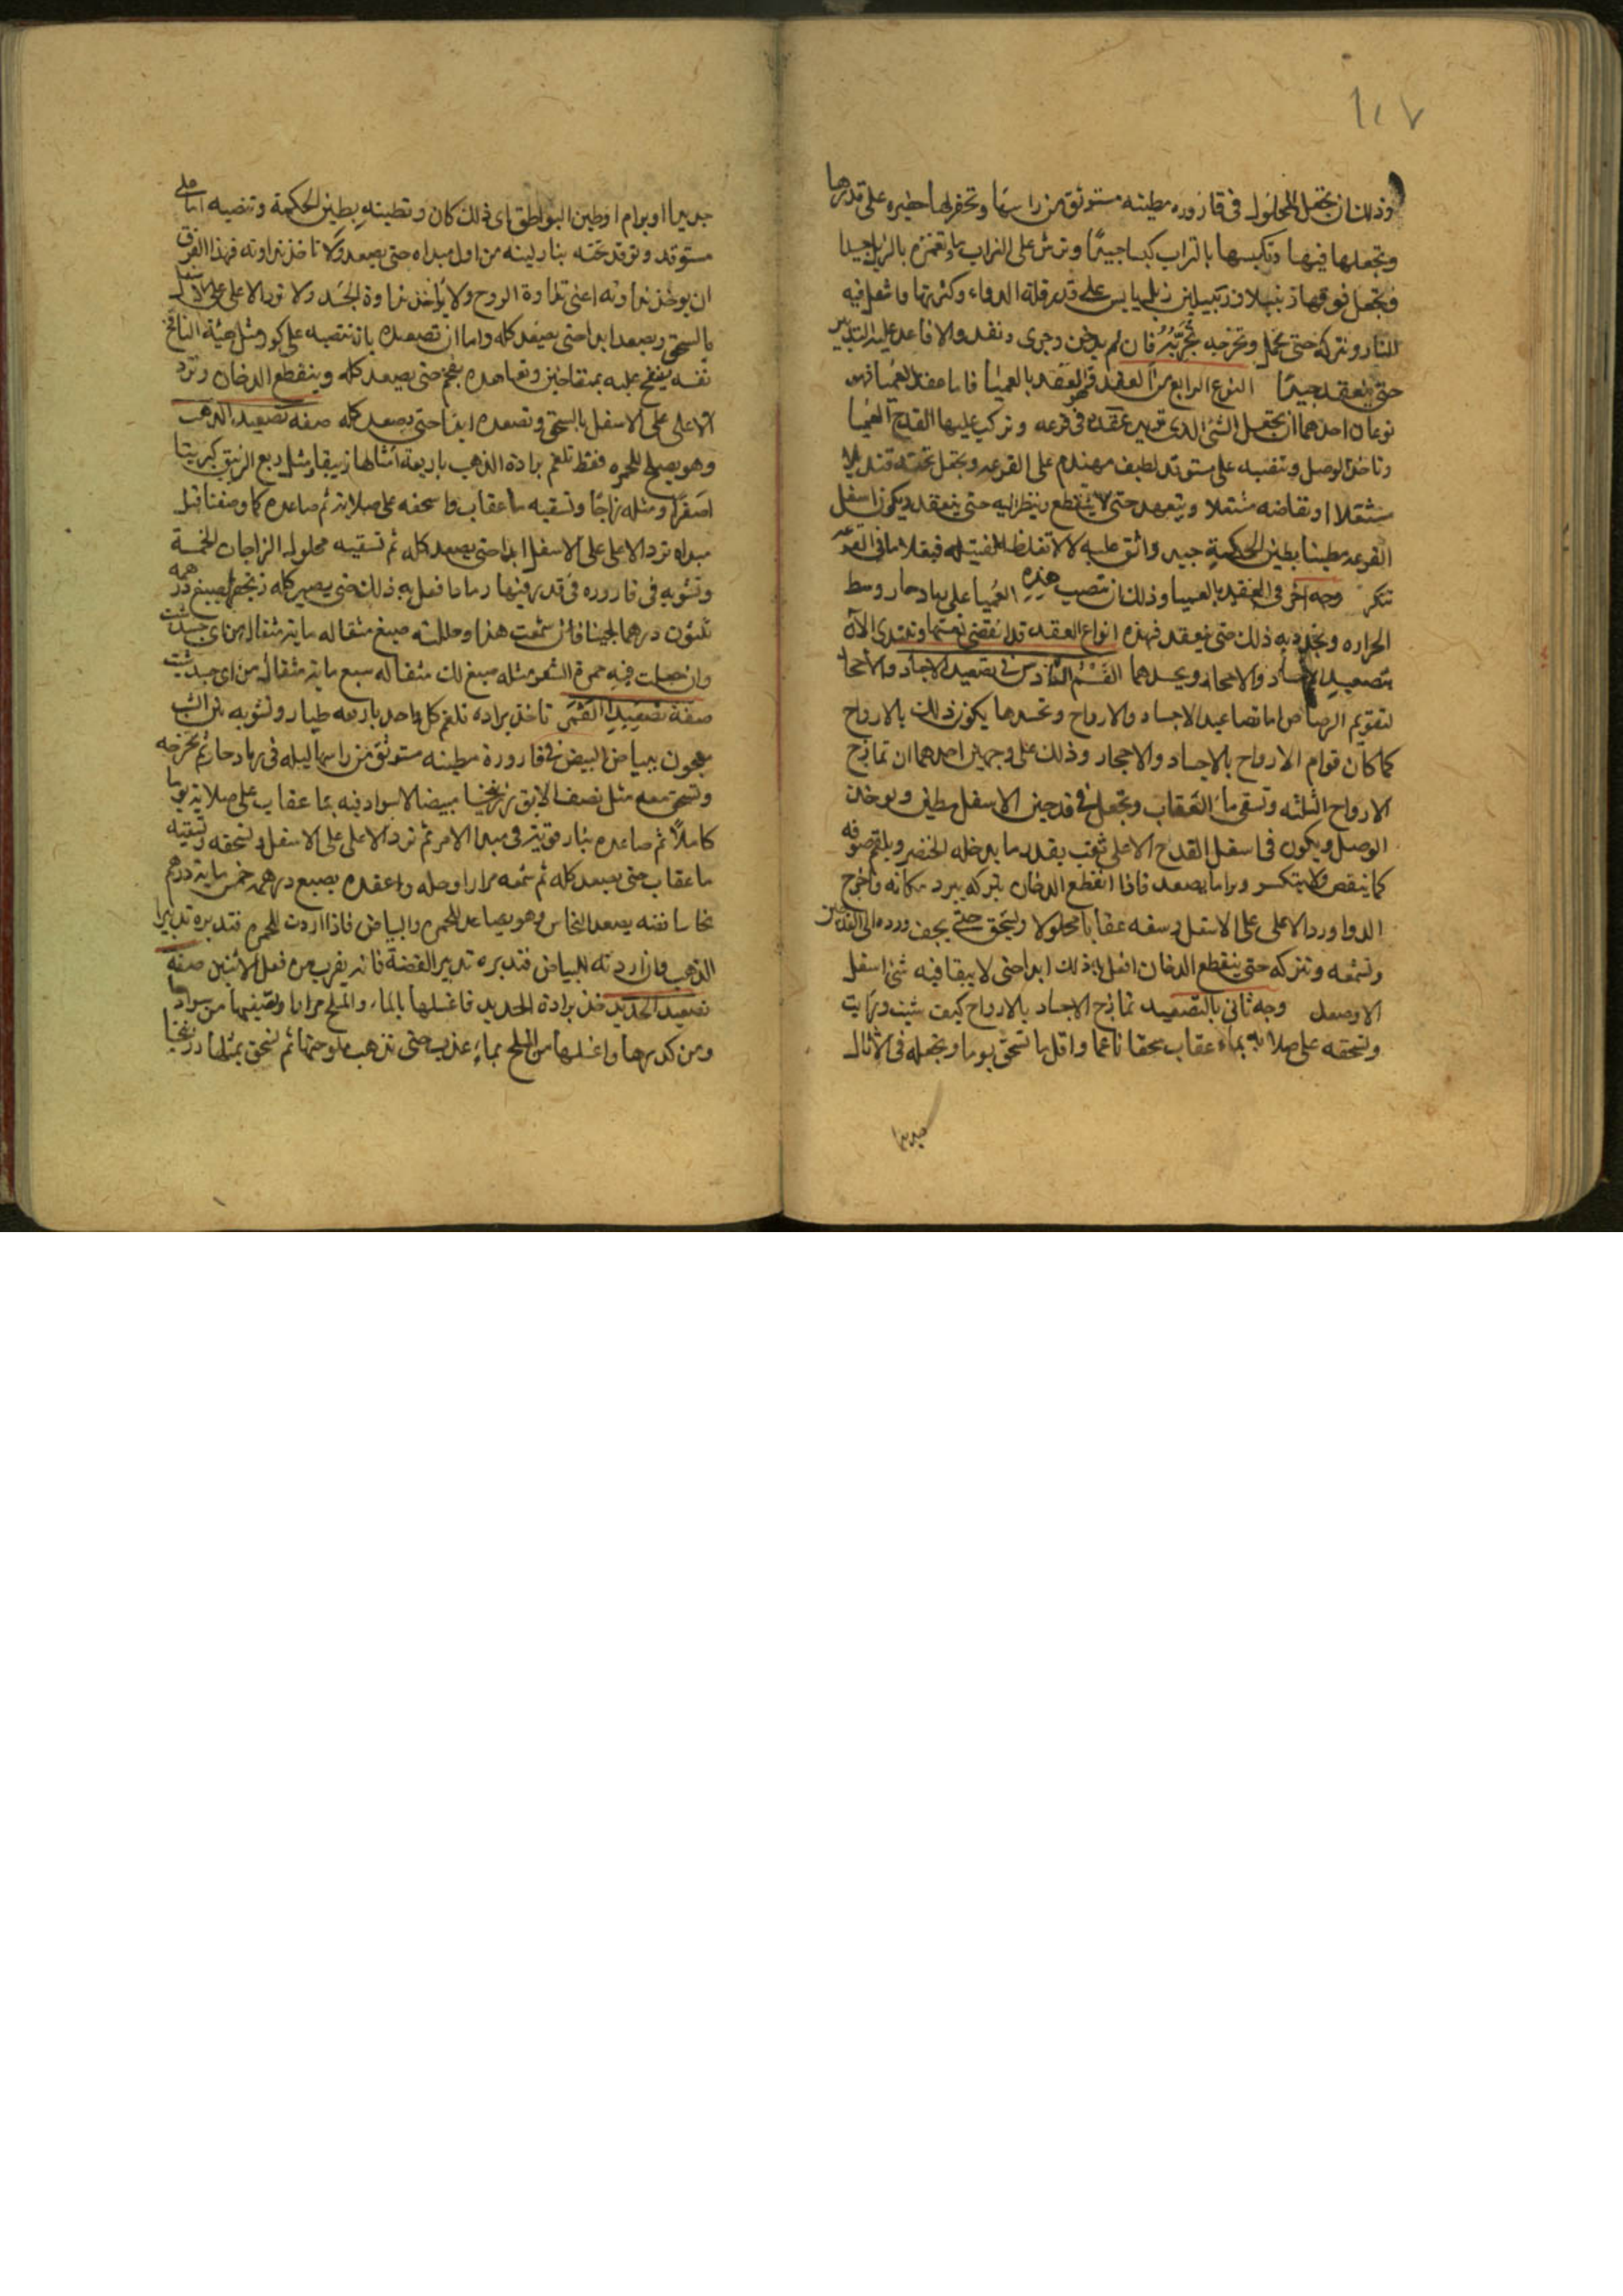 ١٠٧
وذلك ان تجعل المحلول في قارورة مطينه مستوثق من راسها وتحفر لها حفيره على قدرها
وتجعلها فيها وتكبسها بالتراب كبسا جيدًا وترش على التراب ماء وتغمزه بالرجل جيدا
وتجعل فوقها زنبيلا او زنبيلين زبل يابس على قدر قلة الدواء وكثرتها واشعل فيه
النار وتتركه حتى ينحل وتخرجه تجربه فان لم يدخن وجرى ونفد والا فاعد عليه التدبير
حتى ينعقد جيدًا النوع الرابع من العقد فهو العقد بالعميا فاما عقد العميا فهو
نوعان احدهما ان تجعل الشئ الذي تريد عقده في قرعه وتركب عليها القدح العميا
وتاخذ الوصل وتنصبه على مستوقد لطيف مهندم على القرعه وتجعل تحته قنديلا
مشتعلا او نفاضه مشتعلا ويتعهد حتى لا ينقطع وينظر اليه حتى ينعقد ويكون اسفل
القرعه مطينا بطين الحكمة جيد واثق عليه لا لا تغلظ الفتيله فيغلا ما في القرعه
تنكر وجه اخر في العقد بالعميا وذلك ان تنصب هذه العميا على رماد حار وسط
الحراره وتجدد به ذلك حتى ينعقد فهذه انواع العقد قد انقضى قسمتها ونبتدى الآن
بتصعيد الاجساد والاحجار ويحدهما القسم السادس في تصعيد الاجساد والاحجار
لتقويم الرصاص اما تصاعيد الاجساد والارواح وتحدها يكون ذلك بالارواح
كما كان قوام الارواح بالاجساد والاحجار وذلك على وجهين احدهما ان تمازج
الارواح الثلثه وتسقى ماء العقاب وتجعل في قدحين الاسفل مطين ويوخذ
الوصل ويكون في اسفل القدح الاعلى ثقب بقدر ما يدخله الخنصر ويلقم صوفه
كما ينقص ولا ينكسر ويراما يصعد فاذا انقطع الدخان يتركه يبرد مكانه واخرج
الدوا ورد الاعلى على الاسفل وسقه عقابا محلولا وليسحق حتى يجف ورده الى القدحين
وتشمعه وتتركه حتى ينقطع الدخان افعل به ذلك ابدا حتى لا يبقا فيه شئ اسفل
الا وصعد وجه ثاني بالتصعيد تمازج الاجساد بالارواح كيف شيت ورايت
وتسحقه على صلايه بماء عقاب سحقا ناعما واقل ما تسحق يوما وتجعله في الاثال
جديدا
جديدا او برام او طين البواطق اى ذلك كان وتطينه بطين الحكمة وتنصبه على
مستوقد وتوقد تحته بنار لينه من اول مبداه حتى يصعد ولا تاخذ نداوته فهذا الفرق
ان يوخذ نداوته اعنى نداوة الروح ولا يواخذ نداوة الجسد ولا ترد الاعلى على الاسفل
بالسحق ويصعد ابدا حتى يصعد كله واما ان تصعده بان تنصبه على كور مثل هيئة النافخ
نفسه ينفخ عليه بمنفاخين وتعاهده بفحم حتى يصعد كله وينقطع الدخان وترد
الاعلى على الاسفل بالسحق وتصعده ايضا حتى يصعد كله صفه تصعيد الذهب
وهو يصلح للحمره فقط تلغم برادة الذهب باربعة امثالها زيبقا ومثل ربع الزيبق كبريتا
اصفرا ومثله زاجا وتسقيه ماء عقاب واسحقه على صلايه ثم صاعده كما وصفنا قبل
مبداه ترد الاعلى على الاسفل ابدا حتى يصعد كله ثم تسقيه محلول الزاجات الخمسة
وتشويه في قاروره في قدر فيها رماد افعل به ذلك حتى يصير كله زنجفرا يصبغ درهمه
ثلثون درهما لجينا فان شمعت هذا وحللته صبغ مثقاله ماية مثقال من اى جسد شئت
وان جعلت فيه حمرة الشعر مثله صبغ لك مثقاله سبع ماية مثقال من اى جسد شئت
صفة تصعيد القمر تاخذ براده تلغم كل واحد باربعه طيار وتشويه بتراب
معجون ببياض البيض في قارورة مطينه مستوثق من راسها ليله في رماد حار ثم تخرجه
وتسحق معه مثل نصف الابق زرنيخا مبيضا لا سواد فيه بماء عقاب على صلايه يوما
كاملًا ثم صاعده بنار قويه في مبدا الامر ثم ترد الاعلى على الاسفل وتسحقه وتسقيه
ماء عقاب حتى يصعد كله ثم شمعه مرارا وحله واعقده يصبغ درهمه خمس ماية درهم
نحاسا نقيه يصعد النحاس وهو يصاعد للحمره والبياض فاذا اردت للحمره فتدبره تدبير
الذهب وان اردته للبياض فتدبره تدبير الفضة فانه يقرب من فعل الاثنين صفه
تصعيد الحديد خذ برادة الحديد فاغسلها بالماء والملح مرارا وتصفيها من سوادها
ومن كدرها واغسلها من الملح بماء عذب حتى تذهب ملوحتها ثم تسحق بمثلها زرنيخا